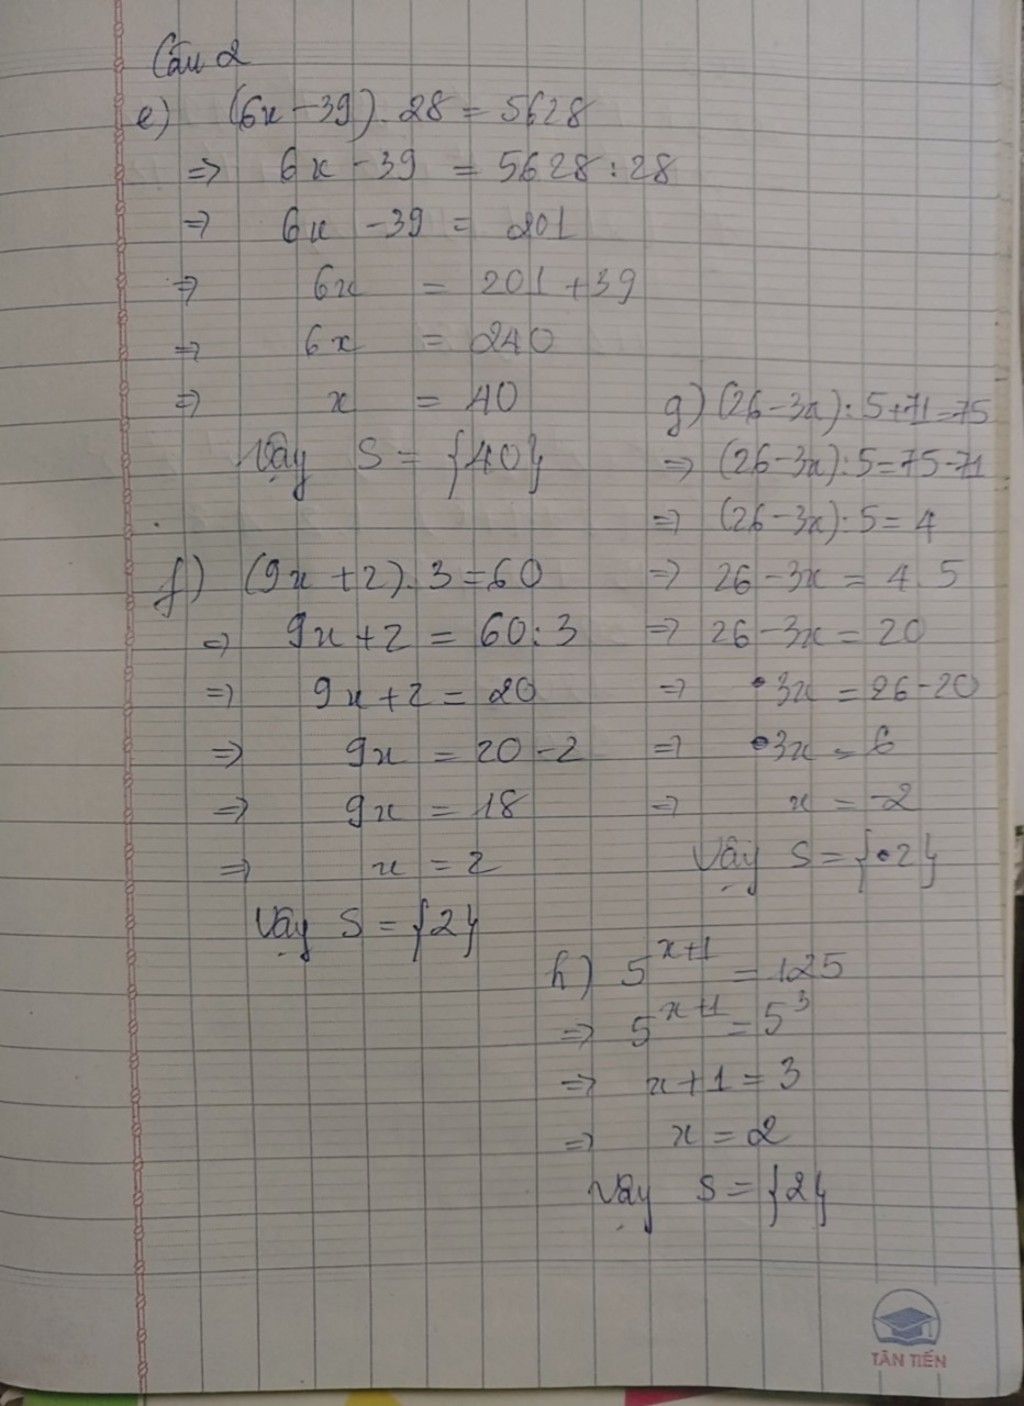 Câu 2
e) (6x - 39) . 28 = 5628
=> 6x - 39 = 5628 : 28
=> 6x - 39 = 201
=> 6x = 201 + 39
=> 6x = 240
=> x = 40
Vậy S = {40}
f) (9x + 2) . 3 = 60
=> 9x + 2 = 60 : 3
=> 9x + 2 = 20
=> 9x = 20 - 2
=> 9x = 18
=> x = 2
Vậy S = {2}
g) (26 - 3x) : 5 + 71 = 75
=> (26 - 3x) : 5 = 75 - 71
=> (26 - 3x) : 5 = 4
=> 26 - 3x = 4 . 5
=> 26 - 3x = 20
=> 3x = 26 - 20
=> 3x = 6
=> x = -2
Vậy S = {2}
h) 5^{x+1} = 125
=> 5^{x+1} = 5^3
=> x + 1 = 3
=> x = 2
Vậy S = {2}
TÂN TIẾN